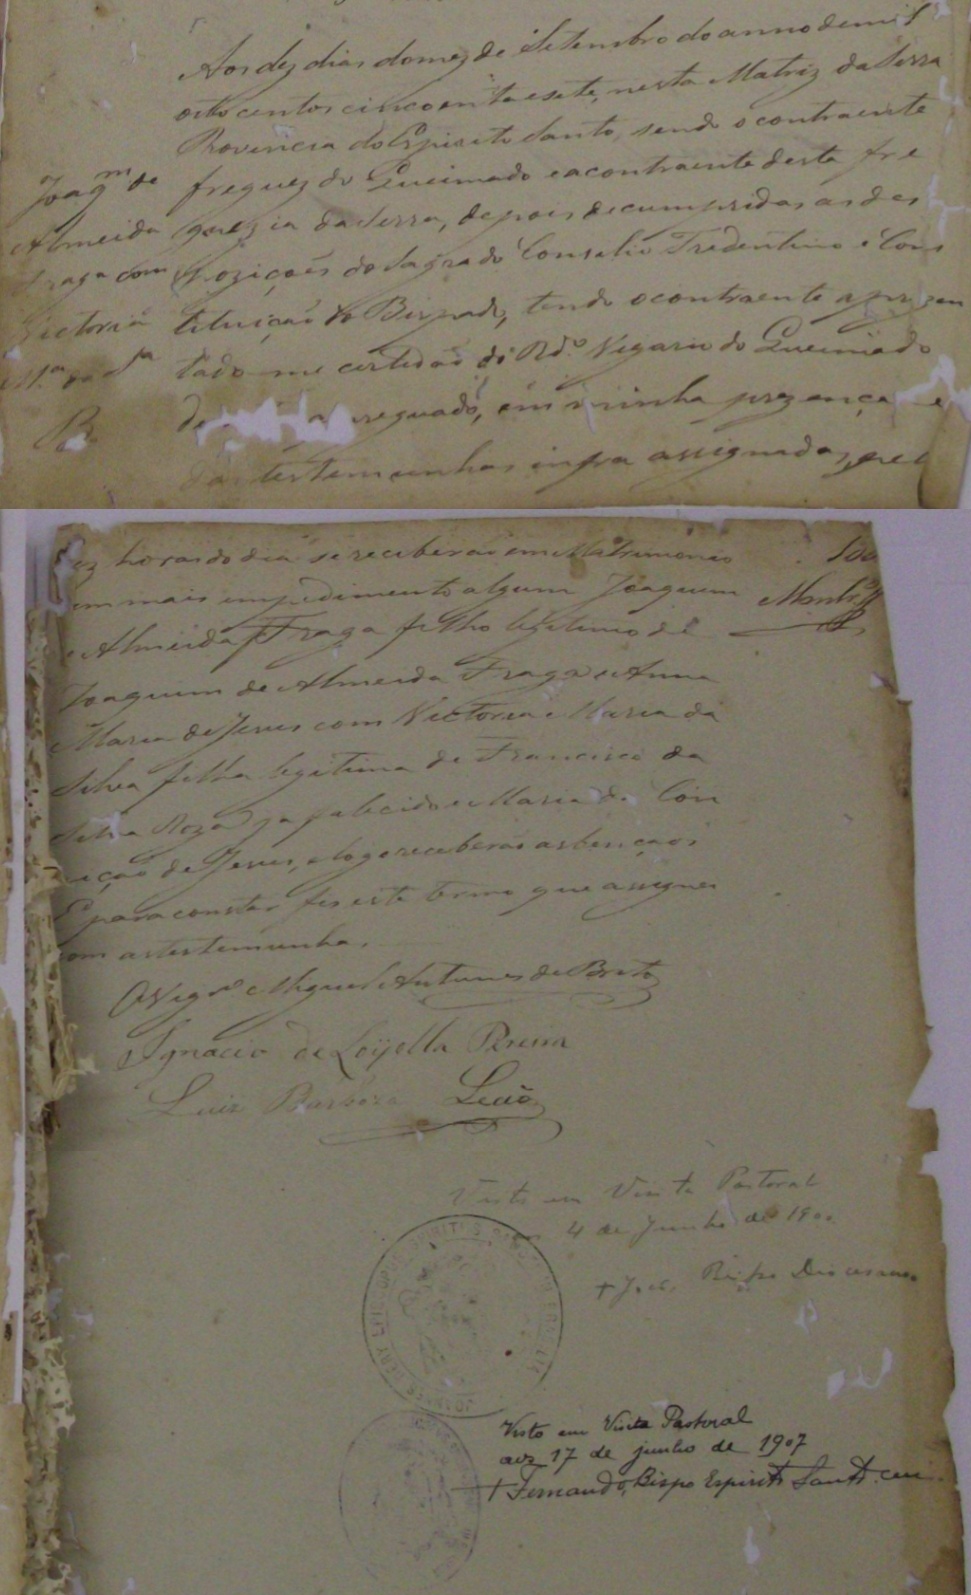 Aos dez dias do mez de Setembro do anno de mil
oito centos cincoenta e sete, nesta Matriz da Serra
Provincia do Espirito Santo, sendo o contraente
Joaqm de
freguez do Queimado e a contraente desta fre
Almeida
guezia da Serra, depois de cumpridas as des
Fraga com
poziçoẽs do Sagrado Conselio Tredentino e Cons
Victoria
tituição do Bispado, tendo o contraente aprezen
Ma da Sa
tado me certidaõ do Rdo Vegario do Queimado
B.
de preguado, em minha prezença e
das testemunhas infra assignadas, pel
dez horas do dia se receberaõ em Matrimonio
sem mais impedimento algum Joaquim
de Almeida Fraga filho legitimo de
Joaquim de Almeida Fraga e Anna
Maria de Jesus com Victoria Maria da
Silva filha legitima de Francisco da
Silva Roza ja falecido e Maria da Con
ceição de Jesus, e logo receberaõ as bençaõs
E para constar fis este termo que assignei
com as testemunha.
O Vigro Miguel Antunes de Brito
Ignacio de Loijolla Pereira
Luiz Barboza Leaõ
Visto em Visita Pastoral
4 de Junho de 1900
+ João, Bispo Diocesano
Visto em Visita Pastoral
aos 17 de junho de 1907
+ Fernando, Bispo Espirito Santo